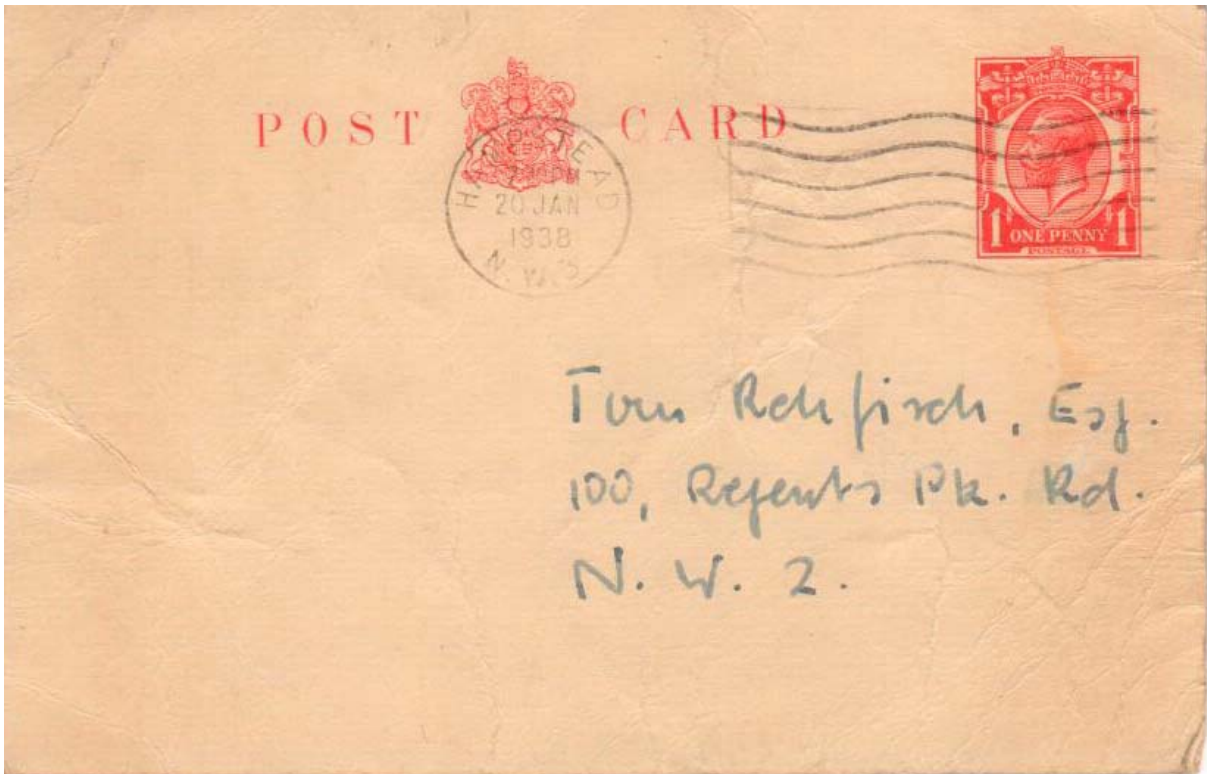 POST CARD
HAMPSTEAD
PM
20 JAN
1938
N.W.3
1 ONE PENNY 1
POSTAGE
Tom Rehfisch, Esq.
100, Regents Pk. Rd.
N. W. 2.